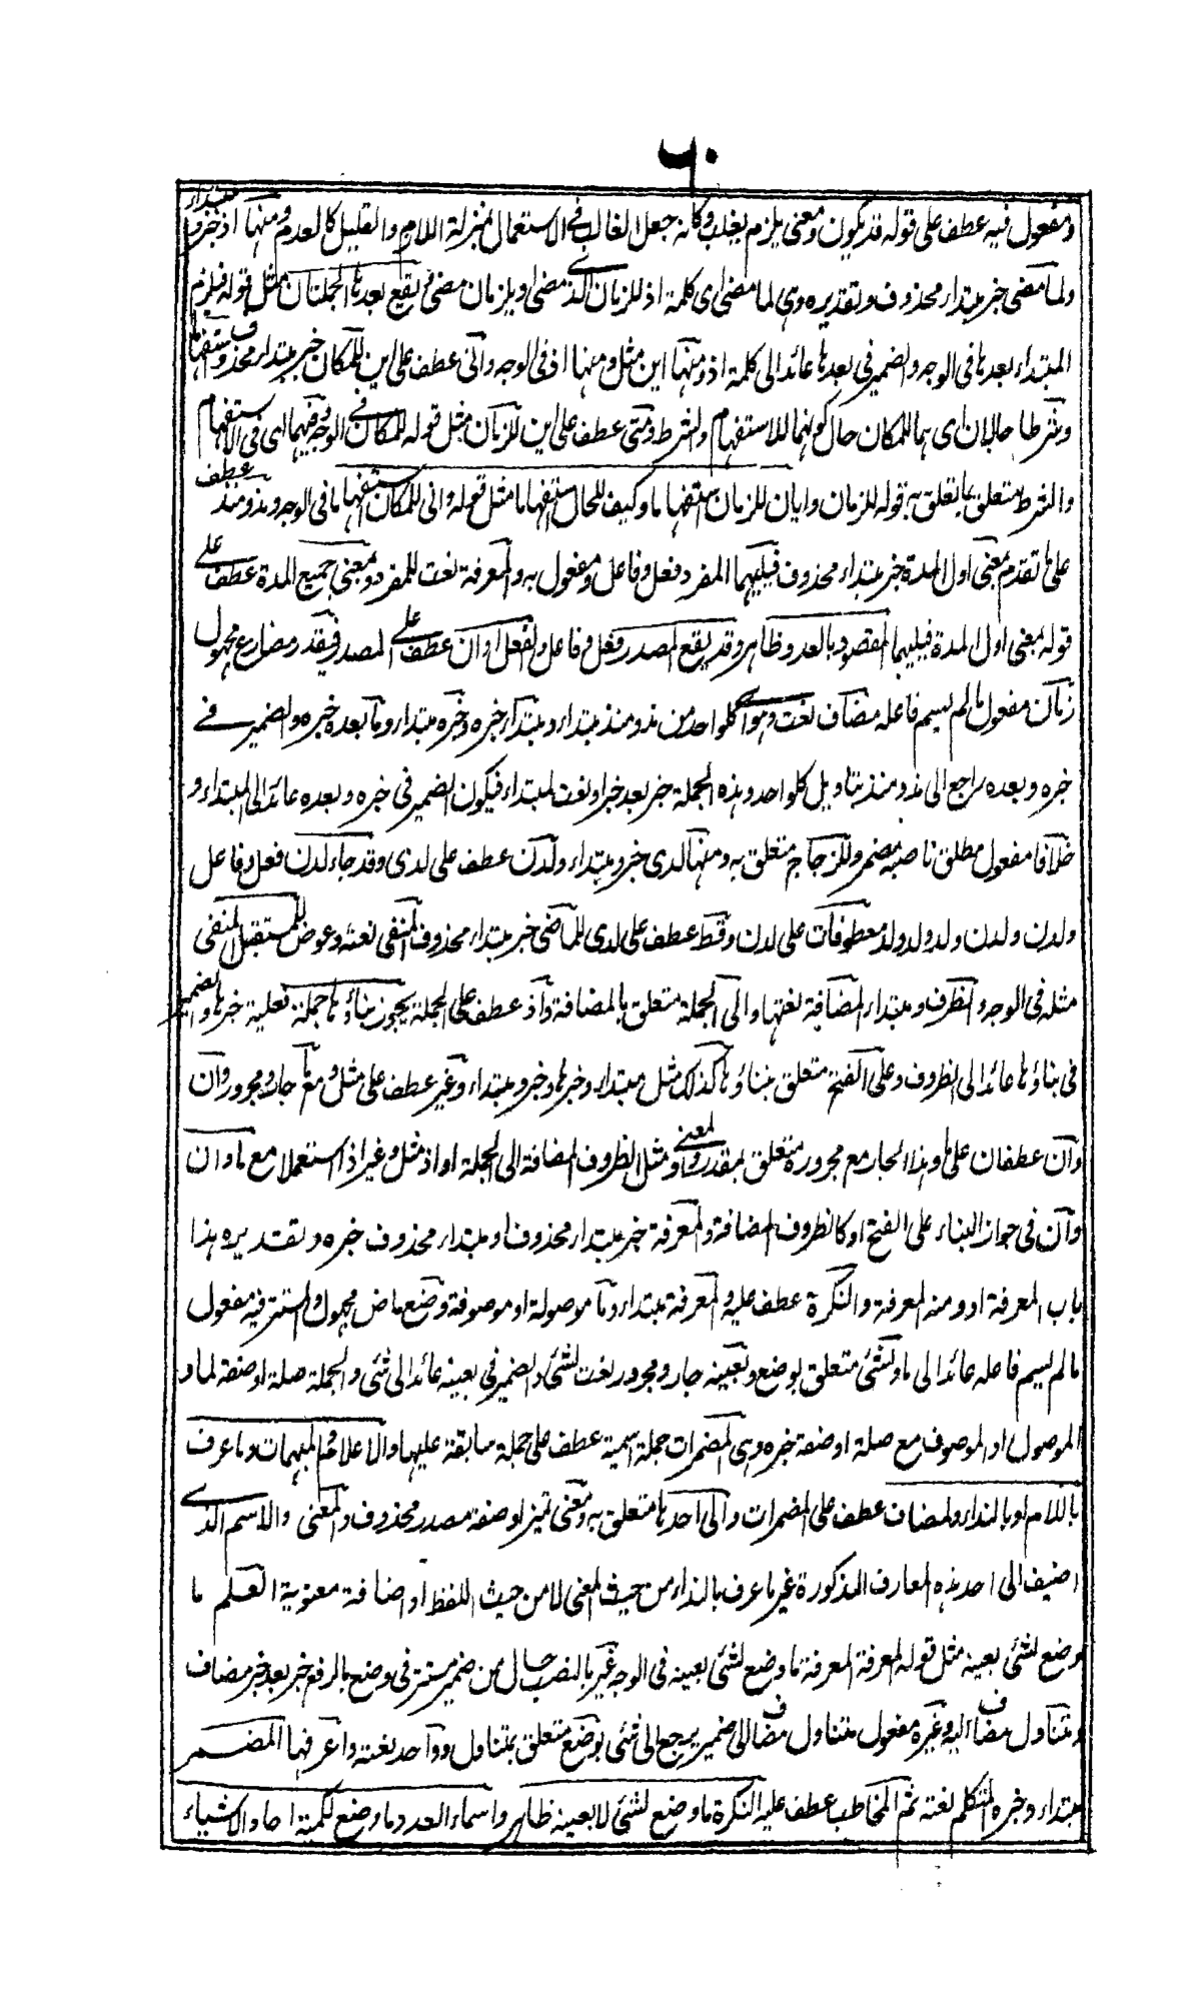 ٦٠
ومفعول فيه عطف على قوله قد يكون ومعنى يلزم يغلب وكانه جعل الغالب فى الاستعمال بمنزلة اللازم والقليل كالعدم ومنها اذ خبر و مبتداء
ولما مضى خبر مبتداء محذوف وتقديره وهى لما مضى اى كلمة اذ للزمان الذى مضى او بزمان مضى ويقع بعدها الجملتان مثل قوله فيلزم
المبتداء بعدها فى الوجه والضمير فى بعدها عائد الى كلمة اذ ومنها اين مثل ومنها اذ فى الوجه وانى عطف على اين للمكان خبر مبتداء محذوف استفهاما
وشرطا حالان اى هما للمكان حال كونهما للاستفهام والشرط ومتى عطف على اين للزمان مثل قوله للمكان فى الوجه وفيهما اى فى الاستفهام
والشرط متعلق بما تعلق به قوله للزمان وايان للزمان استفهاما وكيف للحال استفهاما مثل قوله وانى للمكان استفهاما فى الوجه ومذ ومنذ عطف
على ما تقدم بمعنى اول المدة خبر مبتداء محذوف فيليهما المفرد فعل وفاعل ومفعول به والمعرفة نعت للمفرد وبمعنى جميع المدة عطف على
قوله بمعنى اول المدة فيليهما المقصود بالعدد ظاهر وقد يقع المصدر فعل وفاعل والفعل او ان عطف على المصدر فيقدر مضارع مجهول
زمان مفعول مالم يسم فاعله مضاف نعت وهو اى كلواحد من مذ ومنذ مبتداء ومبتداء خبره وخبره مبتداء وما بعده خبره والضمير فى
خبره وبعده راجع الى مذ ومنذ بتاويل كلواحد وهذه الجملة خبر بعد خبر او نعت لمبتداء فيكون الضمير فى خبره وبعده عائد الى المبتداء و
خلافا مفعول مطلق ناصبه مضمر وللزجاج متعلق به ومنها لدى خبر ومبتداء ولدن عطف على لدى وقد جاء لدن فعل وفاعل
ولدن ولدن ولد ولد ولد معطوفات على لدن وقط عطف على لدى للماضى خبر مبتداء محذوف المنفى نعته وعوض للمستقبل المنفى
مثله فى الوجه والظرف ومبتداء المضافة نعتها والى الجملة متعلق بالمضافة واذ عطف على الجملة يجوز بناؤها جملة فعلية خبرها والضمير
فى بناؤها عائد الى الظروف وعلى الفتح متعلق ببناؤها وكذلك مثل مبتداء وخبرها وخبر ومبتداء وغير عطف على مثل ومع ما جار ومجرور وان
وان عطفان على ما وهذا الجار مع مجروره متعلق بمقدر والمعنى ومثل الظروف المضافة الى الجملة او اذ مثل وغير اذا استعملا مع ما وان
وان فى جواز البناء على الفتح او كالظروف المضافة والمعرفة خبر مبتداء محذوف او مبتداء محذوف خبره وتقديره هذا
باب المعرفة او ومنه المعرفة والنكرة عطف عليه والمعرفة مبتداء وما موصولة او موصوفة وضع ماض مجهول والمستتر فيه مفعول
مالم يسم فاعله عائد الى ما ولشئ متعلق بوضع وبعينه جار ومجرور نعت لشئ والضمير فى بعينه عائد الى شئ والجملة صلة او صفة لما و
الموصول او الموصوف مع صلة او صفة خبره وهى المضمرات جملة اسمية عطف على جملة سابقة عليها والاعلام والمبهمات وما عرف
باللام او بالنداء والمضاف عطف على المضمرات والى احدها متعلق به ومعنى تميز او صفة مصدر محذوف والمعنى والاسم الذى
اضيف الى احد هذه المعارف المذكورة غير ما عرف بالنداء من حيث المعنى لا من حيث اللفظ او اضافة معنوية العلم ما
وضع لشئ بعينه مثل قوله المعرفة المعرفة ما وضع لشئ بعينه فى الوجه غير بالنصب حال من ضمير مستتر فى وضع بالرفع خبر بعد خبر مضاف
ومتناول مضاف اليه وغيره مفعول متناول مضاف الى ضمير يرجع الى شئ بوضع متعلق بمتناول وواحد نعته واعرفها المضمر
مبتداء وخبره المتكلم نعته ثم المخاطب عطف عليه النكرة ما وضع لشئ لا بعينه ظاهر واسماء العدد ما وضع لكمية احاد الاشياء